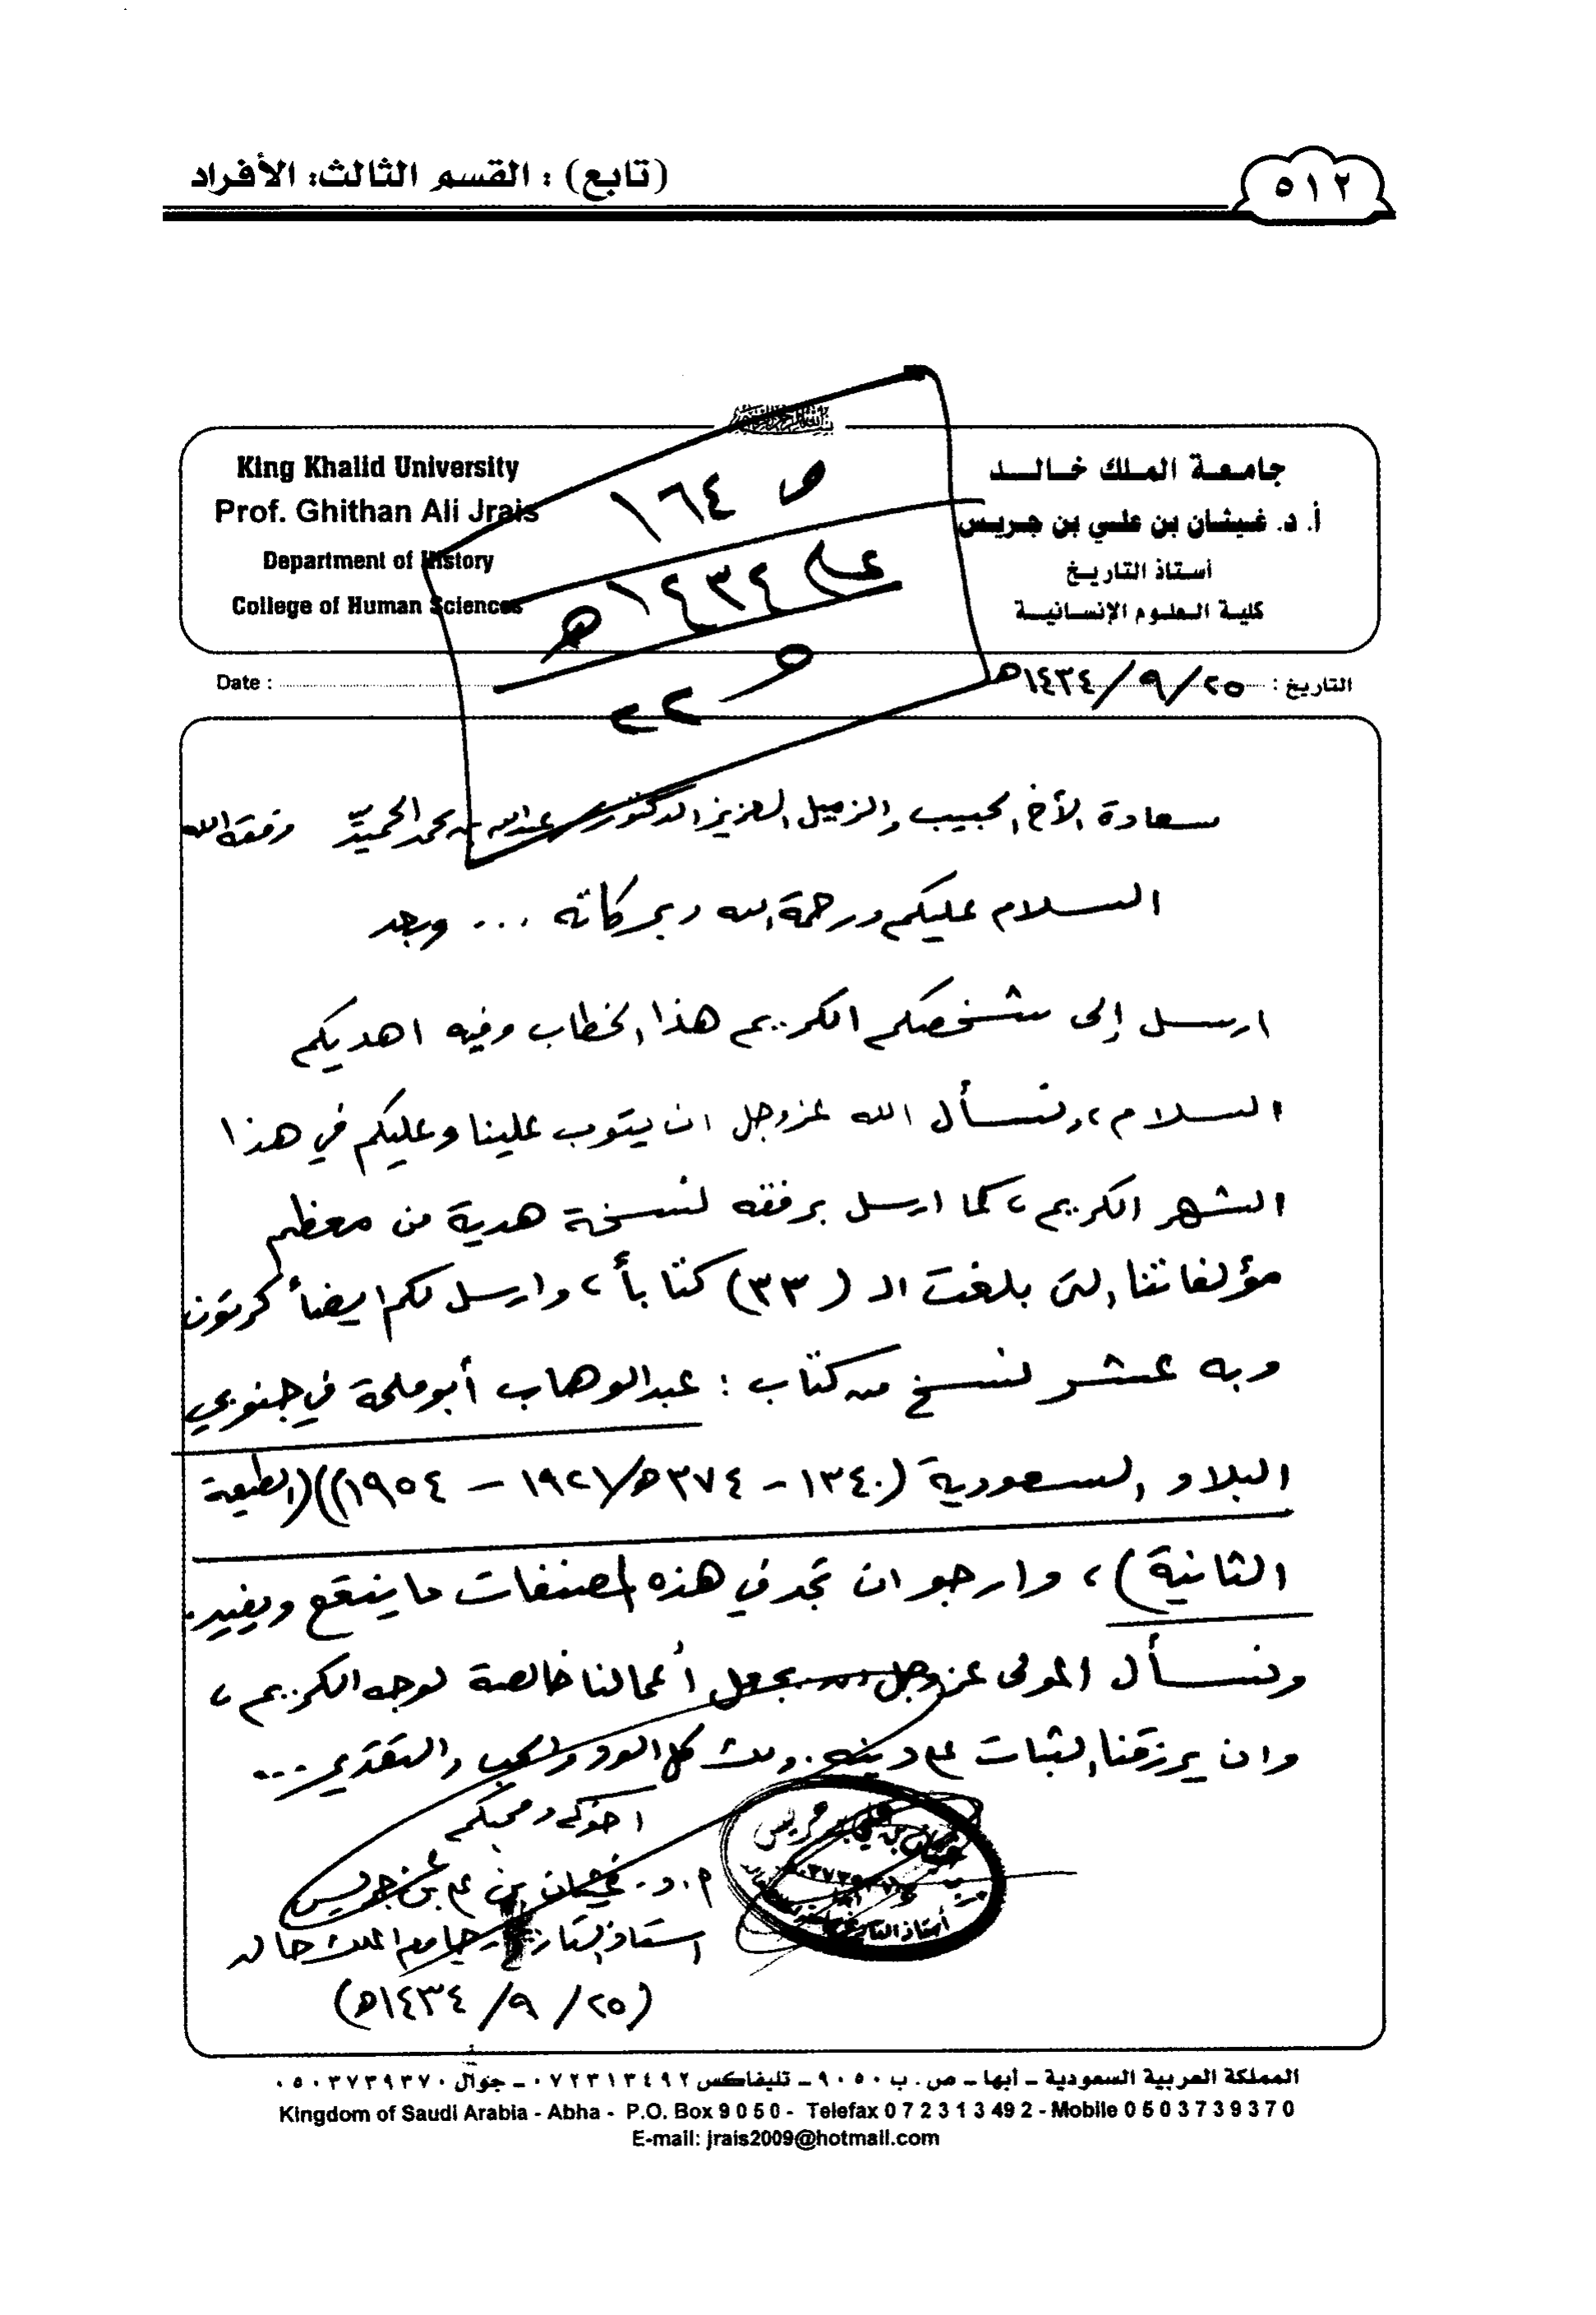 ٥١٢
(تابع) : القسم الثالث: الأفراد
بسم الله الرحمن الرحيم
جامعة الملك خالد
أ. د. غيثان بن علي بن جريس
أستاذ التاريخ
كلية العلوم الإنسانية
King Khalid University
Prof. Ghithan Ali Jrais
Department of History
College of Human Sciences
ص ١٦٤
١٤٣٤هـ
التاريخ : ٢٥/ ٩/ ١٤٣٤هـ
Date :
سعادة الأخ الحبيب والزميل العزيز الدكتور عبدالله بن محمد الحميّد وفقه الله
السلام عليكم ورحمة الله وبركاته ... وبعد
ارسل إلى شخصكم الكريم هذا الخطاب وفيه اهديكم
السلام، ونسأل الله عز وجل ان يتوب علينا وعليكم في هذا
الشهر الكريم، كما ارسل برفقه نسخة هدية من معظم
مؤلفاتنا التي بلغت الـ (٣٣) كتاباً، وارسل لكم ايضاً كرتون
وبه عشر نسخ من كتاب : عبدالوهاب أبو ملحة في جنوبي
البلاد السعودية (١٣٤٠ - ٣٧٤هـ/١٩٢١ - ١٩٥٤)) (الطبعة
الثانية)، وارجو ان تجد في هذه المصنفات ما ينفع ويفيد.
ونسأل المولى عز وجل ان يجعل أعمالنا خالصة لوجه الكريم،
وان يرزقنا الثبات على دينه. ولك كل الود والحب والتقدير...
اخوكم ومحبكم
أ. د. غيثان بن علي بن جريس
استاذ التاريخ بجامعة الملك خالد
(٢٥/ ٩/ ١٤٣٤هـ)
المملكة العربية السعودية - أبها - ص . ب ٩٠٥٠ - تليفاكس ٠٧٢٣١٣٤٩٢ - جوال ٠٥٠٣٧٣٩٣٧٠
Kingdom of Saudi Arabia - Abha - P.O. Box 9 0 5 0 - Telefax 0 7 2 3 1 3 49 2 - Mobile 0 5 0 3 7 3 9 3 7 0
E-mail: jrais2009@hotmail.com